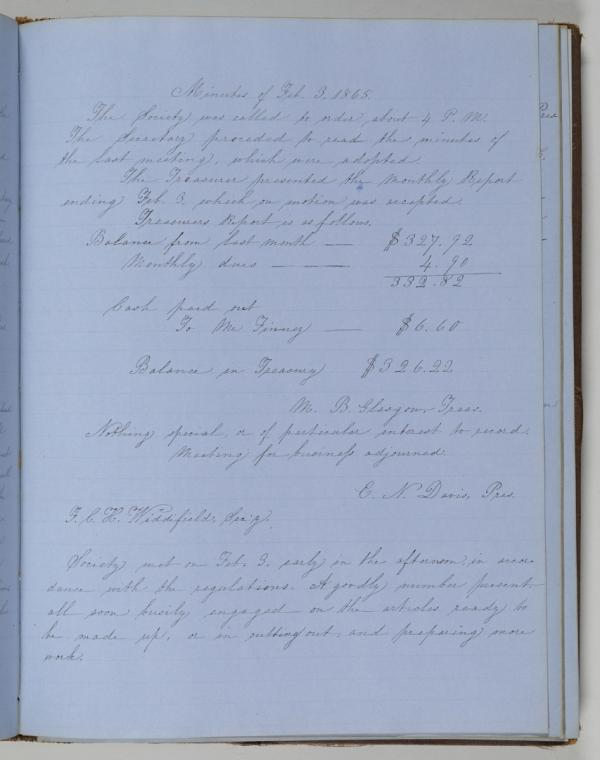 Minutes of Feb. 3, 1865.
The Society was called to order about 4 P. M.
The Secretary proceded to read the minutes of
the last meeting, which were adopted.
The Treasurer presented the Monthly Report
ending Feb. 3. which on motion was accepted.
Treasurers Report is as follows.
Balance from last month — $327.92
Monthly dues — — 4.90
332.82
Cash paid out
To Mr Finney — $6.60
Balance in Treasury $326.22
M. B. Glasgow, Treas.
Nothing special, or of particular interest to record.
Meeting for business adjourned.
E. N. Davis, Pres.
F. C. H. Widdifield, Sec'y.
Society met on Feb. 3. early in the afternoon, in accor-
dance with the regulations. A goodly number present,
all soon busily engaged on the articles ready to
be made up, or in cutting out, and preparing more
work.